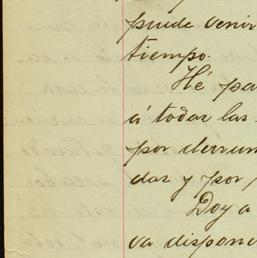 puede venir
tiempo.
Hé pa
á todas las
por derrum
das y por
Doy a
va dispon